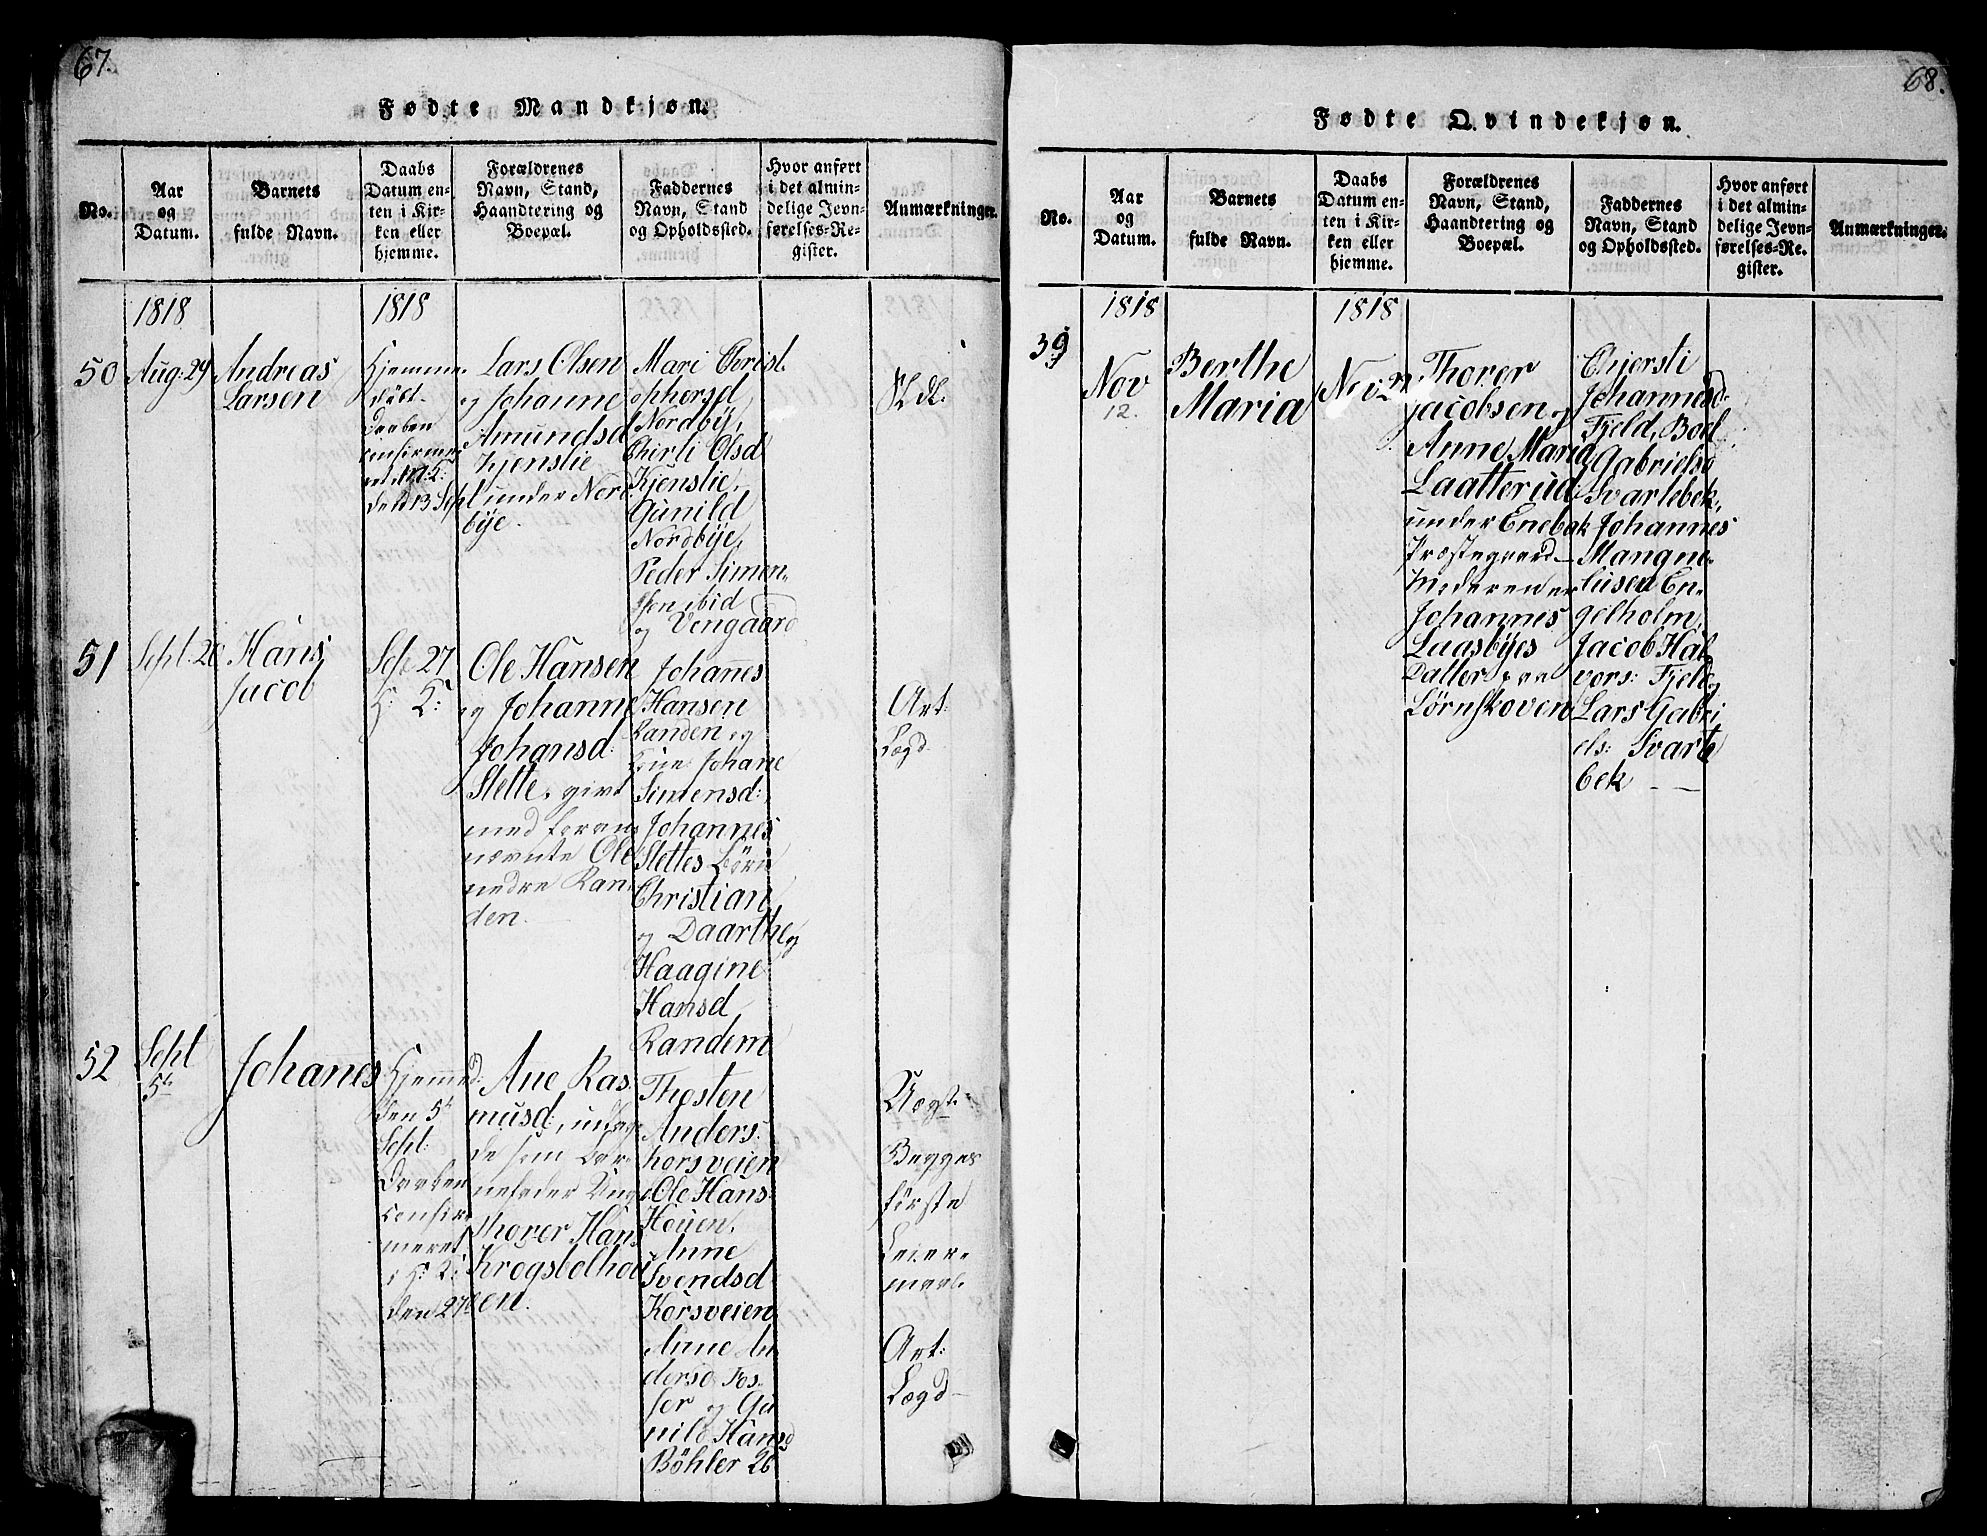 67.
Fødte Mandkjøn.
No.
Aar
og
Datum.
Barnets
fulde Navn.
Daabs
Datum en-
ten i Kir-
ken eller
hjemme.
Forældrenes
Navn, Stand,
Haandtering og
Boepæl.
Faddernes
Navn, Stand
og Opholdssted.
Hvor anført
i det almin-
delige Jevn-
førelses-Re-
gister.
Anmærkninger.
1818
1818
50
Aug. 29
Andreas
Larsen
Hjemme
døbt
Daaben
confirme
ret
den 13 Sept
Lars Olsen
og Johanne
Amundsd
Kjenslie
under Nord
bye.
Mari Christ
ophersd
Nordby,
Chirli Olsd
Kjenslie,
Gunild
Nordbye,
Peder Simon
sen ibid
og Vengaard
51
Sept. 20
Hans
Jacob
Sept 27
H: K:
Ole Hansen
og Johanne
Johansd:
Slette, givt
med foran
nævnte Ole
nedre Ran
den.
Johannes
Hansen
Randen og
Kone Johane
Simensd:
Johannes
Slettes Børn
Christian
og Daarthe og
Haagine
Hansd
Randem
Art:
Lægd
52
Sept
5te
Johanes
Hjemmed:
den 5te
Sept:
Daaben
confir
meret
i H: K:
den 27de
Ane Ras
musd:, udlag
de som Bar
nefader Ung
Thorer Hans
Krogsbolhou
en.
Thosten
Anders:
horsveien
Ole Hans:
Houen,
Anne
Svendsd
Korsveien,
Anne An
dersd Fos
ser og Gu
nild Hansd
Böhler 26
Uægte
Begges
første
Leier
maal
Art:
Lægd
68.
Fødte Qvindekjøn.
No.
Aar
og
Datum.
Barnets
fulde Navn.
Daabs
Datum en-
ten i Kir-
ken eller
hjemme.
Forældrenes
Navn, Stand,
Haandtering og
Boepæl.
Faddernes
Navn, Stand
og Opholdssted.
Hvor anført
i det almin-
delige Jevn-
førelses-Re-
gister.
Anmærkninger.
1818
1818
39
Nov
12.
Berthe
Maria
Nov 22
Thorer
Jacobsen og
Anne Maria
Laatterud
under Enebak
Præstegaard
Moderen er
Johannes
Luasbyes
Datter paa
Börnskoven
Chjersti
Johannesd:
Fjeld, Boel
Gabrielsd
Svartebek,
Johannes
Mangne
lüsen En
gelholm,
Jacob Hal
vors: Fjeld og
Lars Gabri
els: Svarte
bek